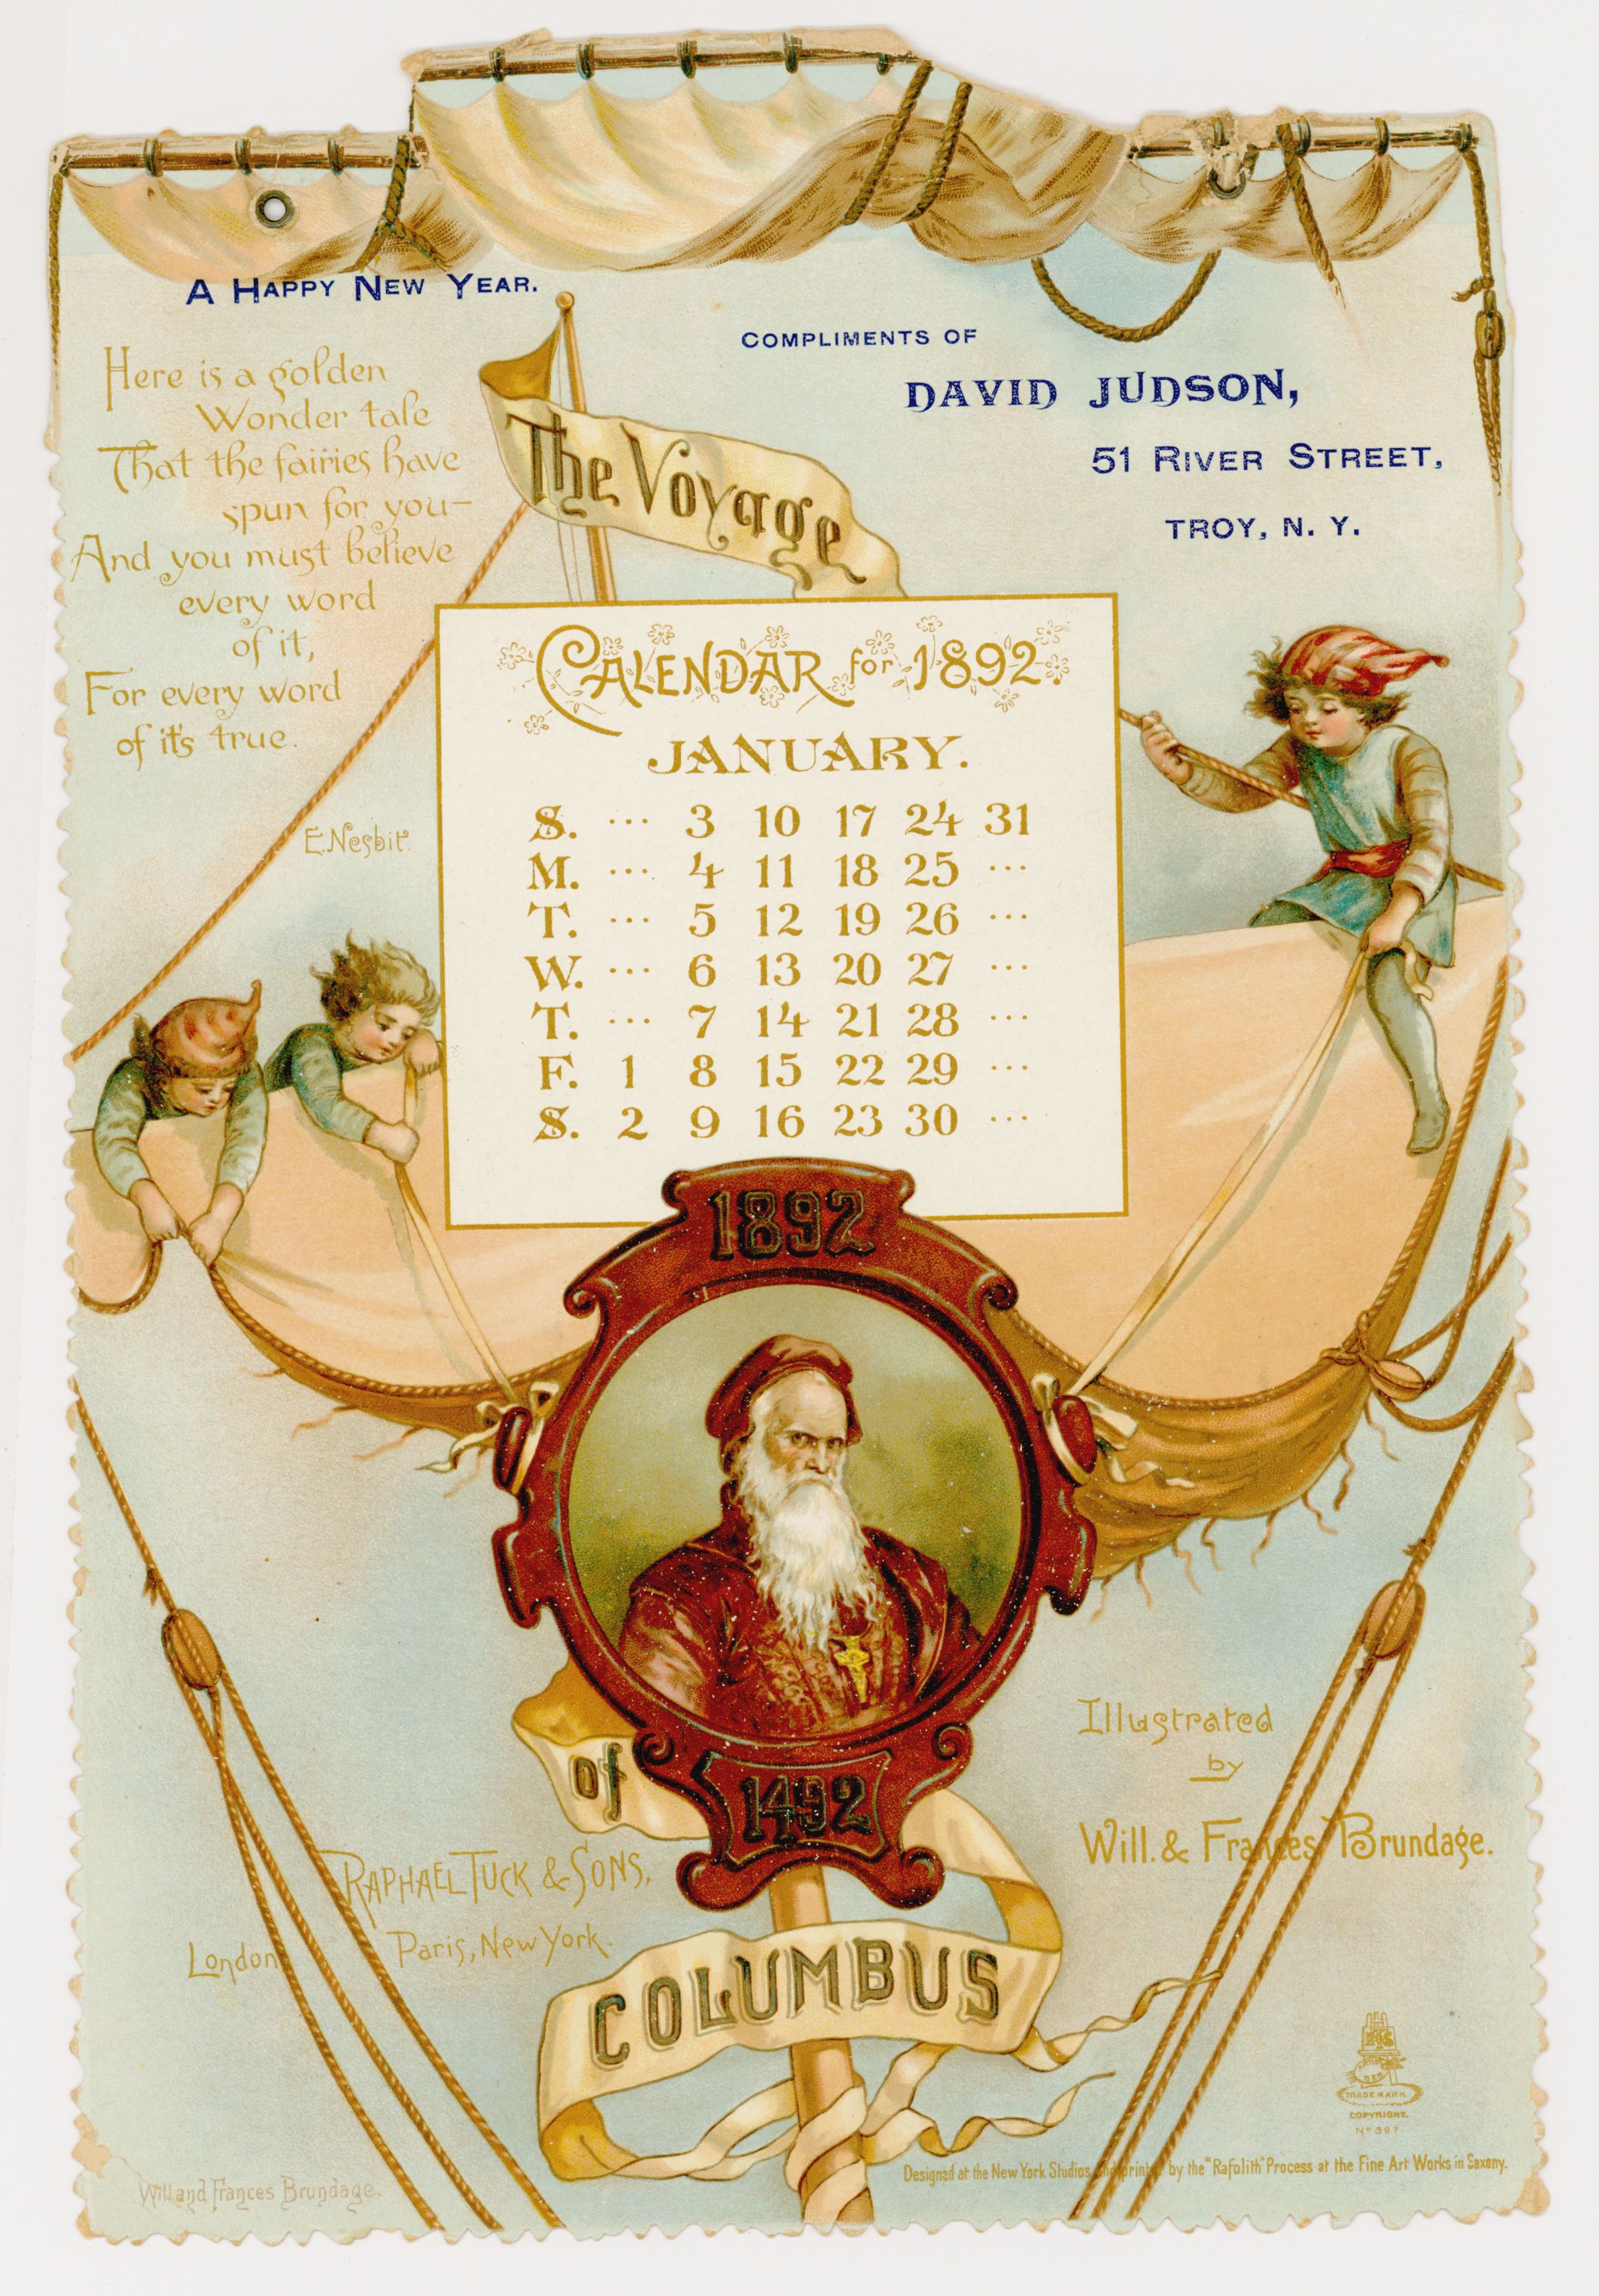 A HAPPY NEW YEAR.
Here is a golden
Wonder tale
That the fairies have
spun for you—
And you must believe
every word
of it,
For every word
of it's true.
E. Nesbit.
COMPLIMENTS OF
DAVID JUDSON,
51 RIVER STREET,
TROY, N. Y.
The Voyage
CALENDAR for 1892.
JANUARY.
S. ... 3 10 17 24 31
M. ... 4 11 18 25 ...
T. ... 5 12 19 26 ...
W. ... 6 13 20 27 ...
T. ... 7 14 21 28 ...
F. 1 8 15 22 29 ...
S. 2 9 16 23 30 ...
1892
of
1492
COLUMBUS
Illustrated
by
Will. & Frances Brundage.
RAPHAEL TUCK & SONS,
London, Paris, New York.
TRADE MARK.
COPYRIGHT.
No 397
Designed at the New York Studios and printed by the "Rafolith" Process at the Fine Art Works in Saxony.
Will and Frances Brundage